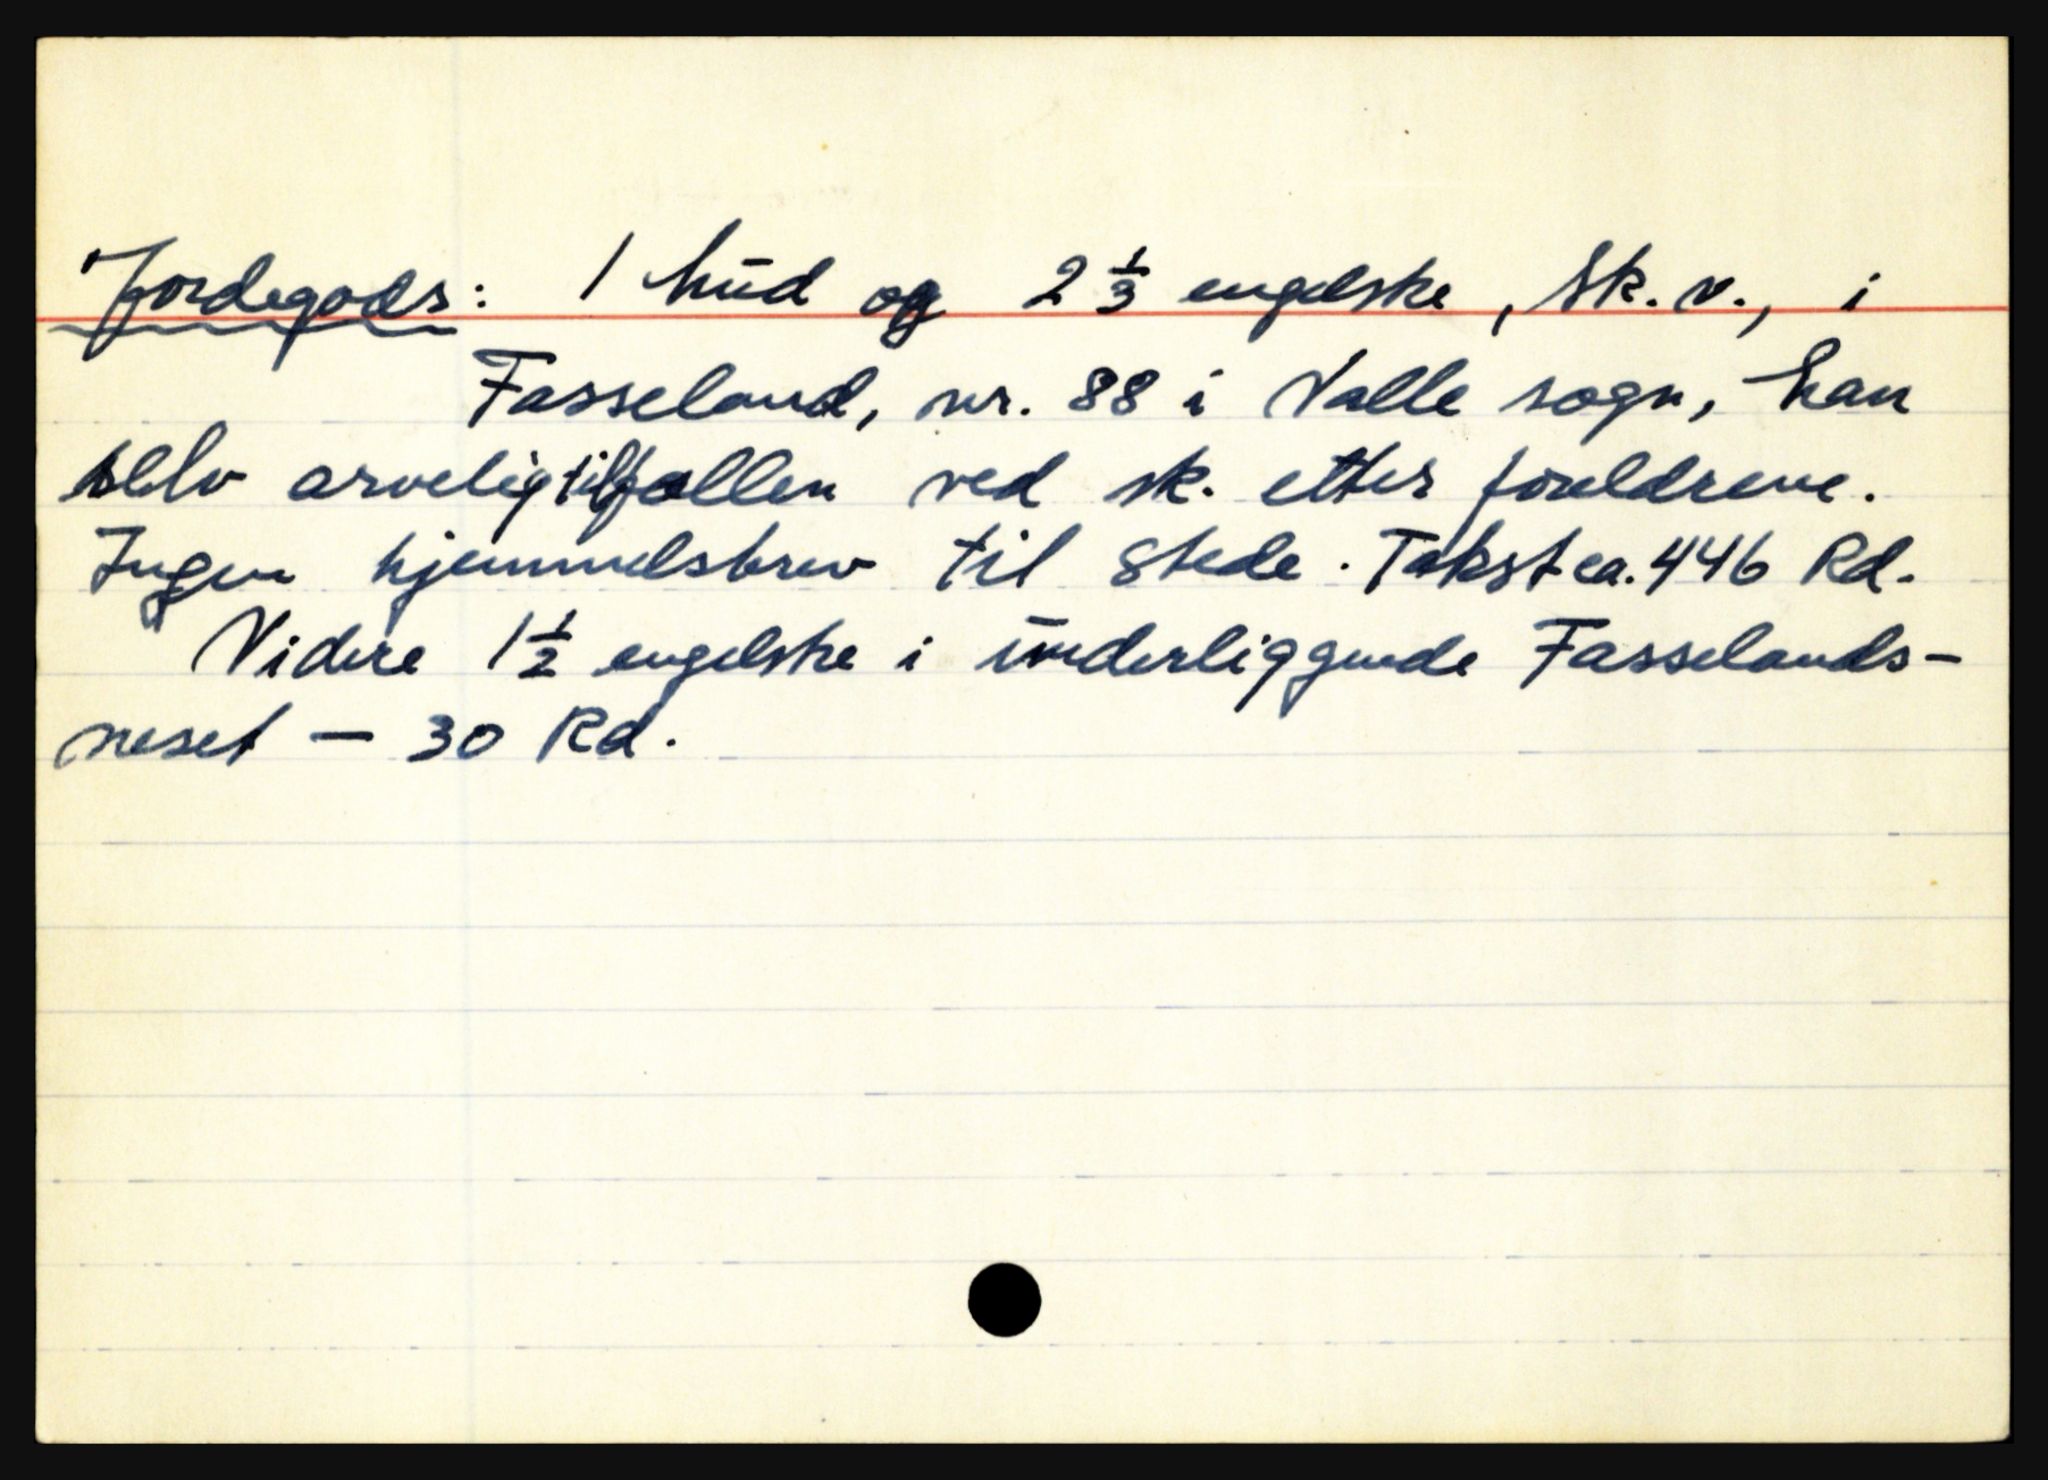 Jordegods: 1 hud og 2 1/3 engelske, Sk. v., i
Fasseland, nr. 88 i Valle sogn, han
selv arveligtilfallen ved sk. etter foreldrene.
Ingen hjemmelsbrev til Stede. Takst ca. 446 Rd.
Videre 1 1/2 engelske i underliggende Fasselands-
neset — 30 Rd.